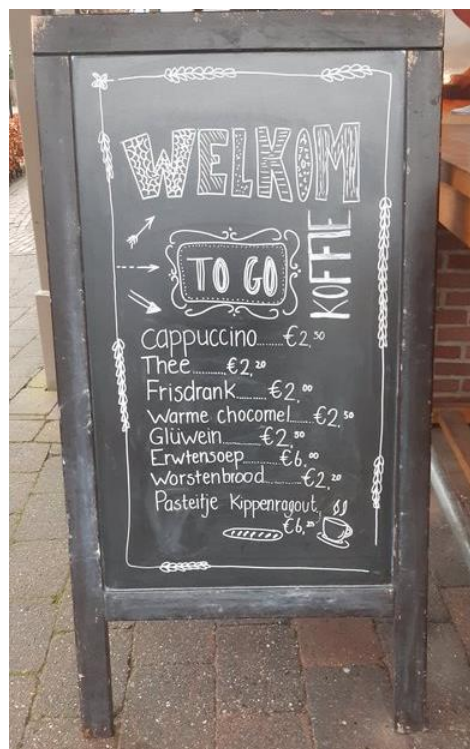 WELKOM
KOFFIE
TO GO
Cappuccino......€2,50
Thee...........€2,20
Frisdrank.......€2,00
Warme chocomel....€2,50
Glüwein.......€2,50
Erwtensoep.......€6,00
Worstenbrood.......€2,20
Pasteitje Kippenragout
€6,25